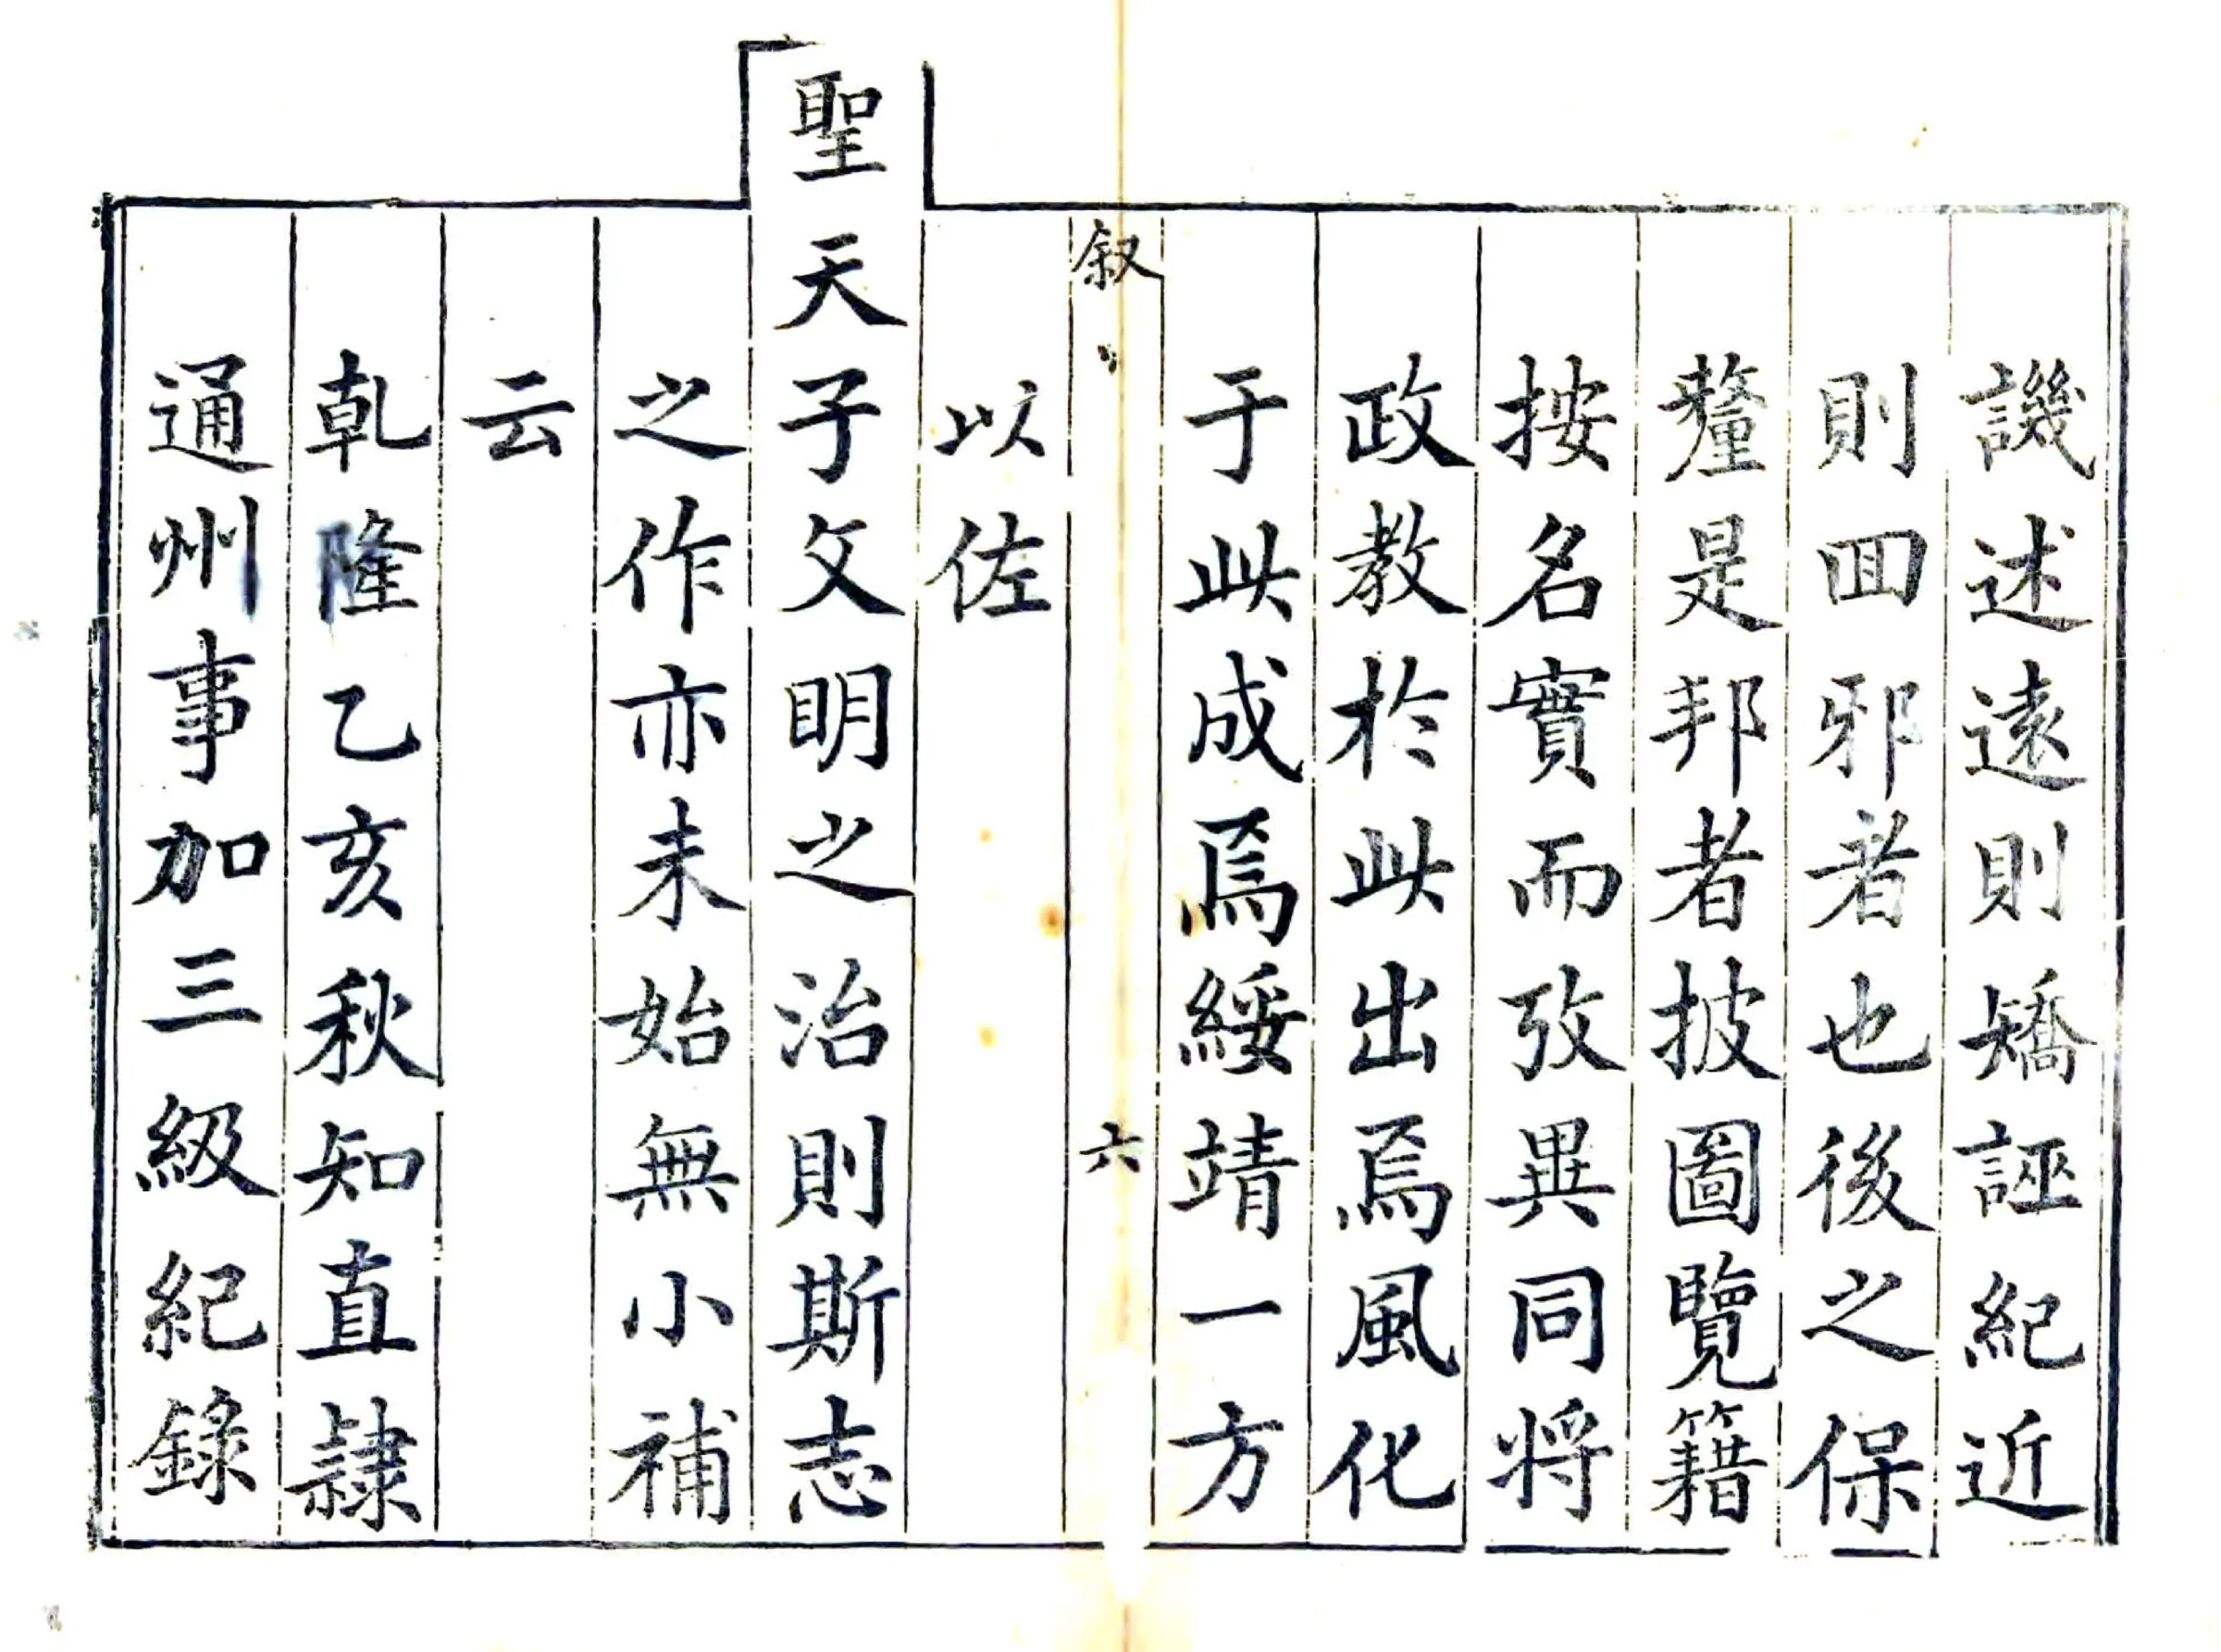 譏述遠則矯誣紀近
則囬邪者也後之保
釐是邦者披圖覽籍
按名實而攷異同將
政教於此出焉風化
于此成焉綏靖一方
叙
六
以佐
聖天子文明之治則斯志
之作亦未始無小補
云
乾隆乙亥秋知直隷
通州事加三級紀錄